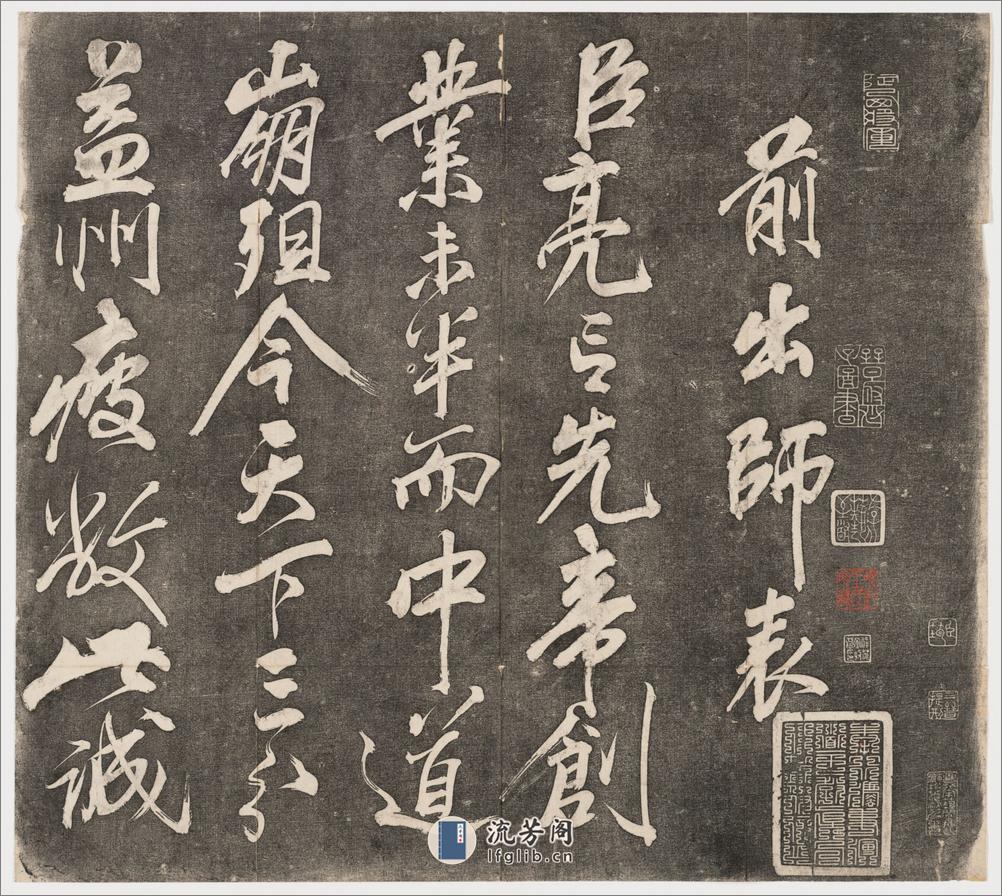 前出師表
臣亮言先帝創
業未半而中道
崩殂今天下三分
益州疲敝此誠
流芳阁
lfglib.cn